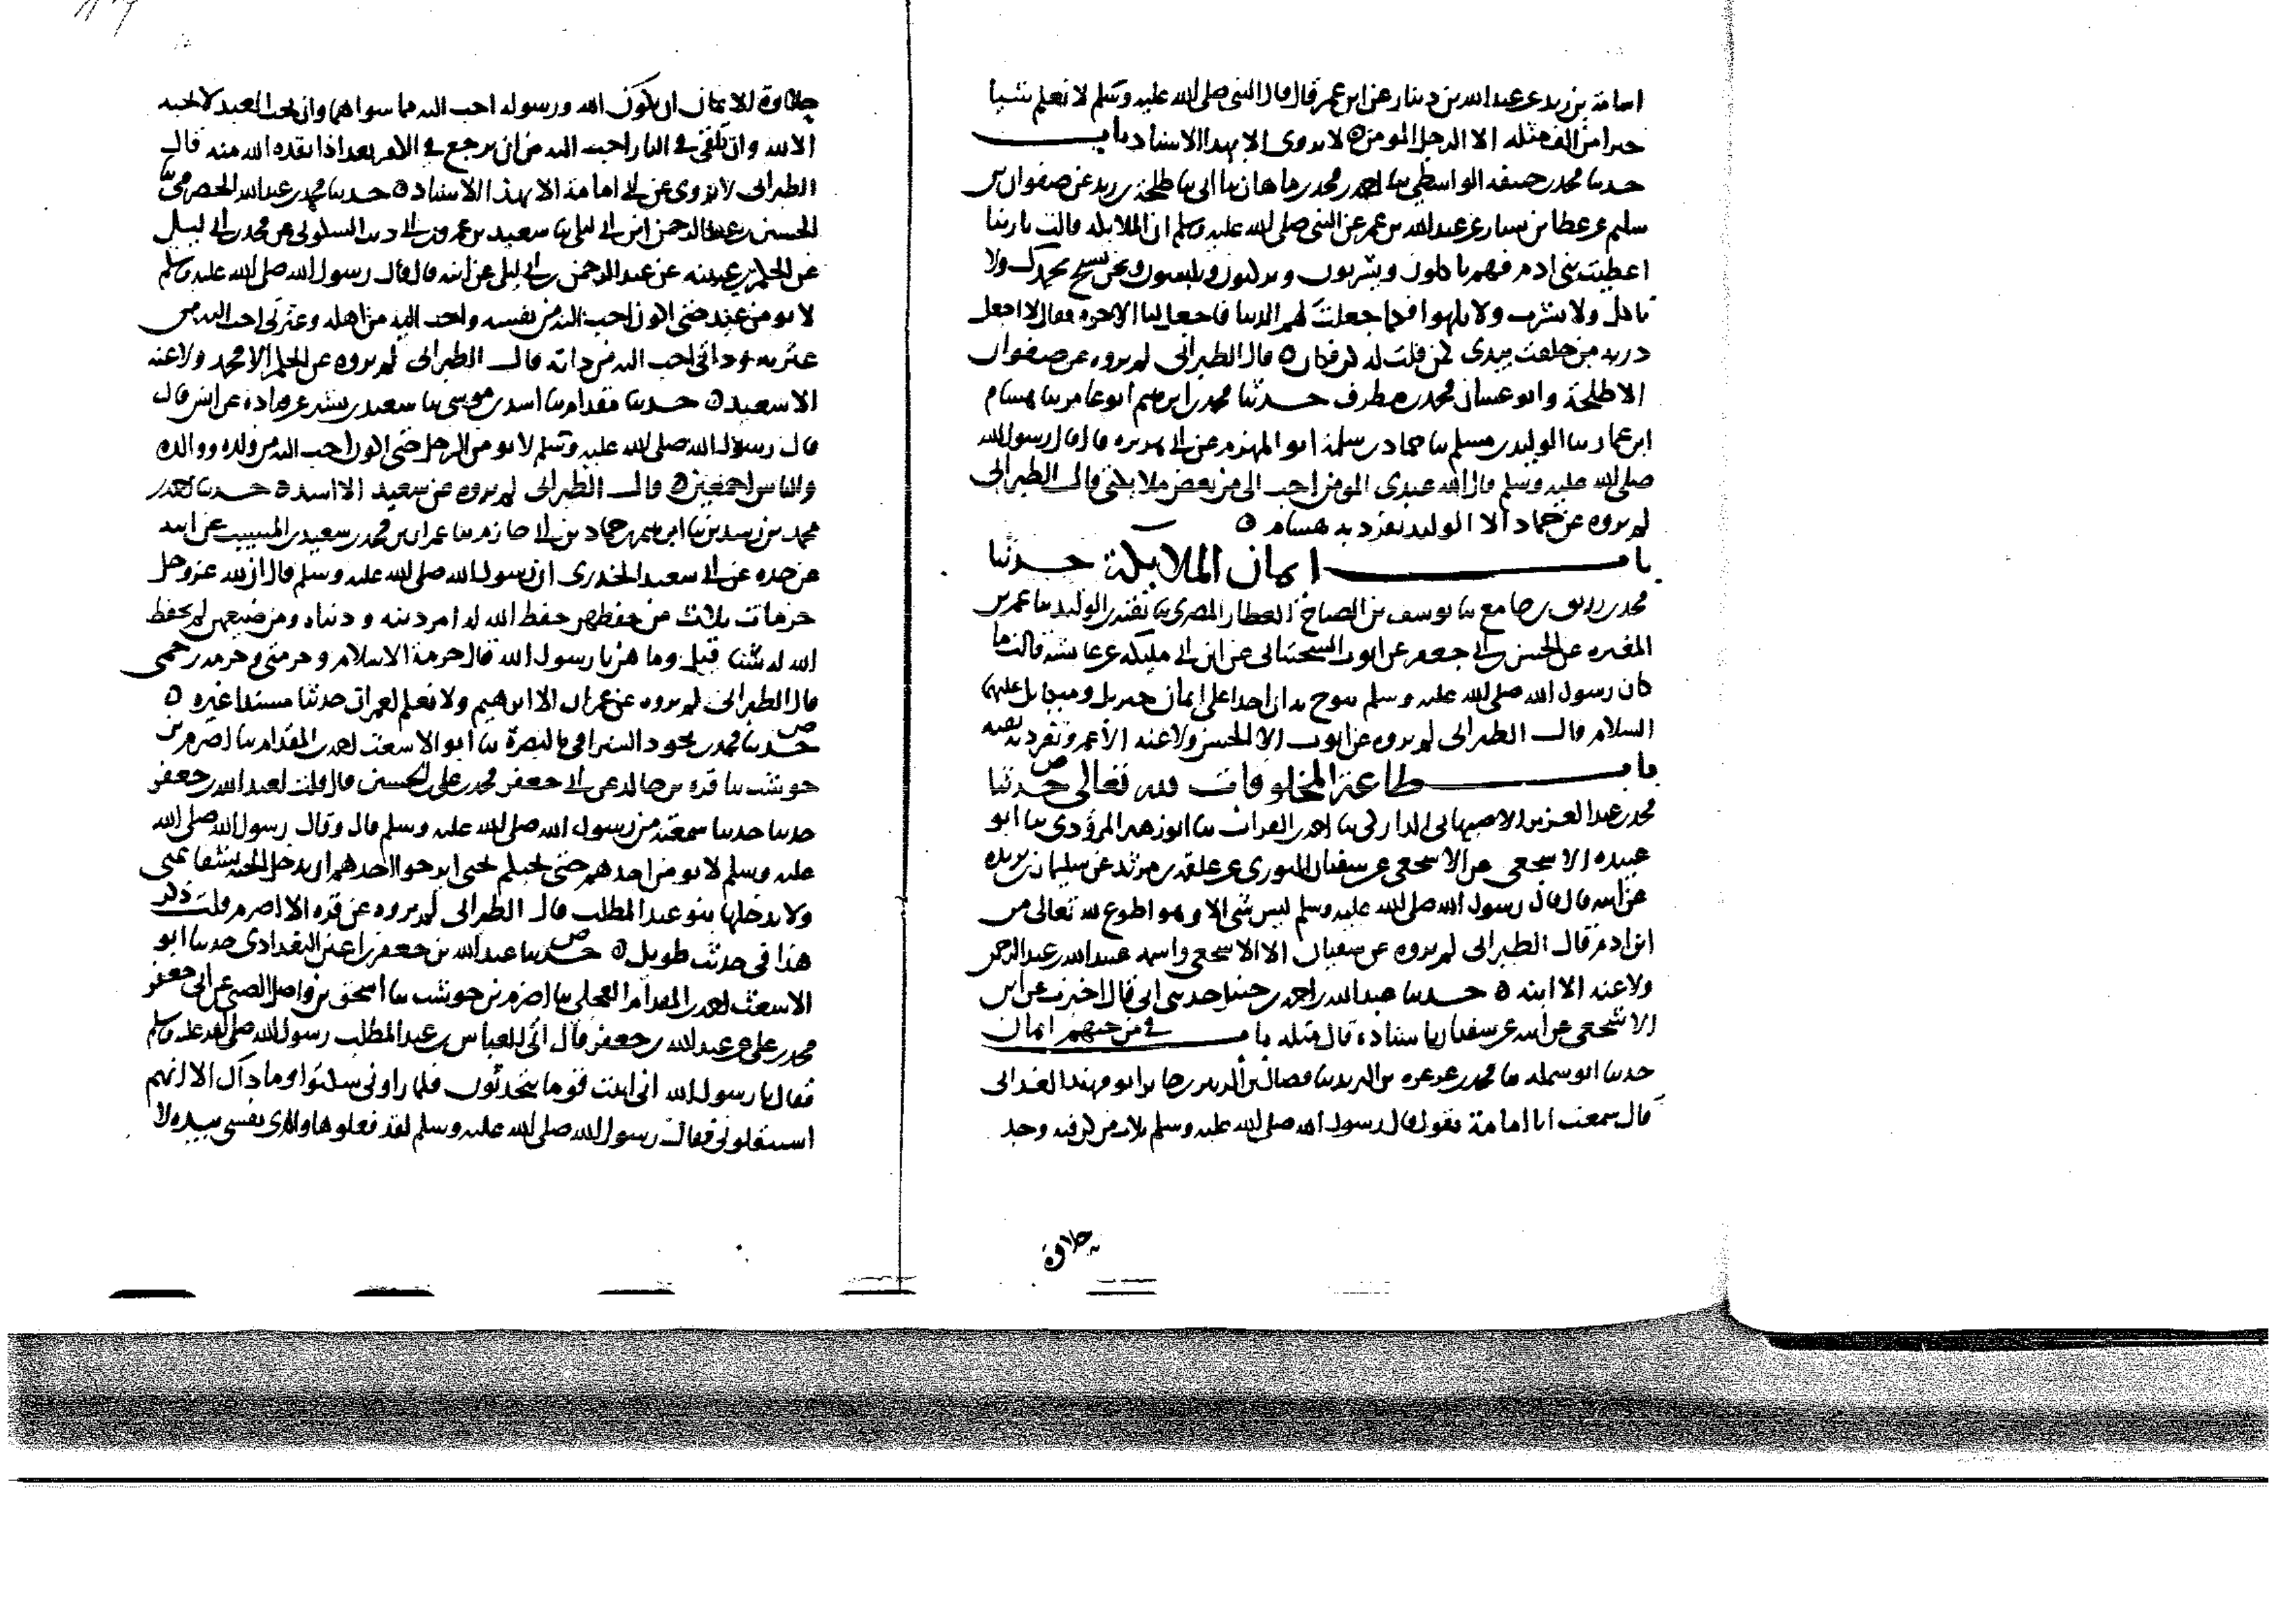 اسامة بن زيد عن عبد الله بن دينار عن ابن عمر قال قال النبي صلى الله عليه وسلم لا نعلم شيئا
خيرا من الف مثله الا الرجل المومن لا يروى الا بهذا الاسناد باب
حدثنا محمد بن حنيفه الواسطي ثنا احمد بن محمد بن ماهان ثنا ابي ثنا طلحة بن زيد عن صفوان بن
سليم عن عطا بن يسار عن عبد الله بن عمر عن النبي صلى الله عليه وسلم ان الملايكه قالت يا ربنا
اعطيت بني ادم فهم ياكلون ويشربون ويركبون ويلبسون ونحن نسبح بحمدك ولا
ناكل ولا نشرب ولا نلهوا فكما جعلت لهم الدنيا فاجعل لنا الاخرة فقال لا اجعل
ذرية من خلقت بيدي كمن قلت له كن فكان قال الطبراني لم يروه عن صفوان
الا طلحة وابو غسان محمد بن مطرف حدثنا محمد بن ابرهيم ابو عامر ثنا هشام
ابن عمار ثنا الوليد بن مسلم ثنا حماد بن سلمة ابو المهزم عن ابي هريرة قال قال رسول الله
صلى الله عليه وسلم قال الله عبدي المومن احب الي من بعض ملايكتي قال الطبراني
لم يروه عن حماد الا الوليد تفرد به هشام
باب ايمان الملايكة حدثنا
محمد بن رزيق بن جامع ثنا يوسف بن الصباح العطار المصري ثنا الوليد ثنا عمر بن
المغيره عن الحسن بن ابي جعفر عن ايوب السختياني عن ابن ابي مليكه عن عايشه قالت ما
كان رسول الله صلى الله عليه وسلم يبوح به ان احدا على ايمان جبريل وميكايل عليهما
السلام قال الطبراني لم يروه عن ايوب الا الحسن ولا عنه الا عمر وتفرد به
باب طاعة المخلوقات لله تعالى حدثنا
محمد بن عبد العزيز الاصبهاني ثنا احمد بن الفرات ثنا ابو زهير المروذي ثنا ابو
عبيده الاشجعي عن الاشجعي عن سفيان الثوري عن علقمه بن مرثد عن سليمان بن بريده
عن ابيه قال قال رسول الله صلى الله عليه وسلم ليس شي الا وهو اطوع لله تعالى من
ابن ادم قال الطبراني لم يروه عن سفيان الا الاشجعي واسمه عبيد الله بن عبد الرحمن
ولا عنه الا ابنه حدثنا عبد الله بن احمد بن حنبل حدثني ابي قال اخبرت عن ابن
الاشجعي عن ابيه عن سفيان باسناده قال مثله باب في من حبهم ايمان
حدثنا ابو محمد بن عرعره بن البرند ثنا فضال بن الزبير
قال سمعت ابا امامة يقول قال رسول الله صلى الله عليه وسلم ثلاث من كن فيه وجد
حلاوة
حلاوة الايمان ان يكون الله ورسوله احب اليه مما سواهما وان يحب العبد لا يحبه
الا لله وان يلقى في النار احب اليه من ان يرجع في الكفر بعد اذ انقذه الله منه قال
الطبراني لا يروى عن ابي امامة الا بهذا الاسناد حدثنا محمد بن عبد الله الحضرمي ثنا
الحسن بن عبد الرحمن ابن ابي ليلى ثنا سعيد بن عمرو بن السكوني عن محمد بن ابي ليلى
عن الحكم بن عيينه عن عبد الرحمن بن ابي ليلى عن ابيه قال قال رسول الله صلى الله عليه وسلم
لا يومن عبد حتى اكون احب اليه من نفسه واحب اليه من اهله وعترتي احب اليه من
عترته وذاتي احب اليه من ذاته قال الطبراني لم يروه عن الحكم الا محمد ولا عنه
الا سعيد حدثنا مقدام ثنا اسد بن موسى ثنا سعيد بن بشير عن قتادة عن انس قال
قال رسول الله صلى الله عليه وسلم لا يومن الرجل حتى اكون احب اليه من ولده ووالده
والناس اجمعين قال الطبراني لم يروه عن سعيد الا اسد حدثنا احمد بن
محمد بن ثنا ابرهيم بن حماد بن ابي حازم ثنا عمران بن محمد بن سعيد بن المسيب عن ابيه
عن جده عن ابي سعيد الخدري ان رسول الله صلى الله عليه وسلم قال ان لله عز وجل
حرمات ثلاث من حفظهن حفظ الله له امر دينه ودنياه ومن ضيعهن لم يحفظ
الله له شيئا قيل وما هن يا رسول الله قال حرمة الاسلام وحرمتي وحرمة رحمي
قال الطبراني لم يروه عن عمران الا ابرهيم ولا نعلم لعمران حديثا مسندا غيره
حدثنا محمد بن عون السيرافي بالبصرة ثنا ابو الاشعث احمد بن المقدام ثنا اصرم بن
حوشب ثنا قرة بن خالد عن ابي جعفر محمد بن علي بن الحسين قال قلت لعبد الله بن جعفر
حدثنا حديثا سمعته من رسول الله صلى الله عليه وسلم قال وقال رسول الله صلى الله
عليه وسلم لا يومن احدهم حتى يحبكم لحبي ايرجوا احدهم ان يدخل الجنة بشفاعتي
ولا يدخلها بنو عبد المطلب قال الطبراني لم يروه عن قره الا اصرم قلت ذكر
هذا في حديث طويل حدثنا عبد الله بن جعفر بن اعين البغدادي حدثنا ابو
الاشعث احمد بن المقدام العجلي ثنا اصرم بن حوشب ثنا اسحق بن واصل الضبي عن ابي جعفر
محمد بن علي عن عبد الله بن جعفر قال اتى العباس بن عبد المطلب رسول الله صلى الله عليه وسلم
فقال يا رسول الله اني اتيت قوما يتحدثون فلما راوني سكتوا وما ذاك الا انهم
استثقلوني فقال رسول الله صلى الله عليه وسلم لقد فعلوها والذي نفسي بيده لا